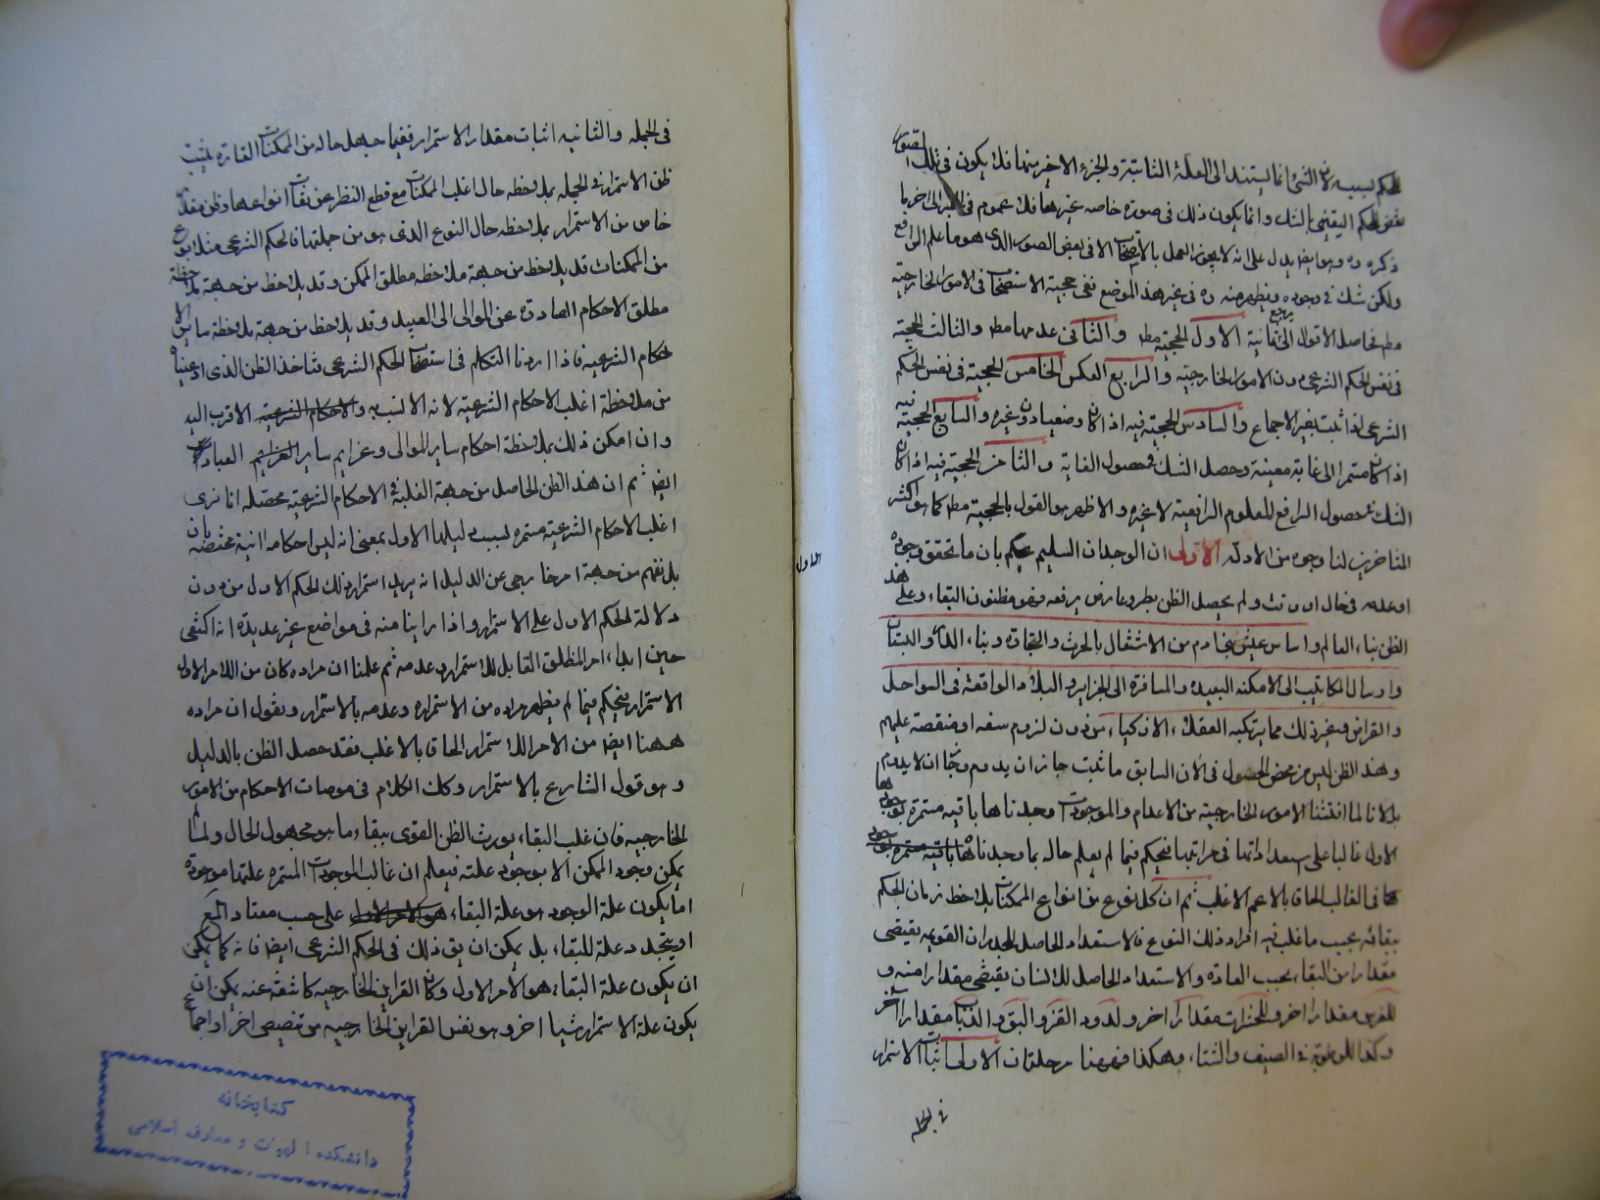 للحكم لسببه لان الشئ انما يستند الى العلة الثابتة والجزء الاخير منها فلا يكون فى تلك الصور
نقض للحكم اليقينى بالشك وانما يكون ذلك فى صورة خاصه غيرها فلا عموم فى الخبر الى اخر ما
ذكره ره وهو ايضا يدل على انه لا يجوز العمل بالاستصحاب الا فى بعض الصور الذى هو ما علم الرافع
ولكن شك فى وجوده ويظهر منه ره فى غير هذا الموضع نفى حجية الاستصحاب فى الامور الخارجية
مط فحاصل الاقوال يرجع الى ثمانية الاول الحجية مط والثانى عدمها مط والثالث الحجية
فى نفس الحكم الشرعى دون الامور الخارجية والرابع العكس الخامس الحجية فى نفس الحكم
الشرعى اذا ثبت بغير الاجماع والسادس الحجية فيه اذا كان وضعيا دون غيره والسابع الحجية فيه
اذا كان مستمرا الى غاية معينة وحصل الشك فى حصول الغاية والثامن الحجية فيه اذا كان
الشك فى حصول الرافع للمعلوم الرافعية لا غيره والاظهر هو القول بالحجية مط كما هو اكثر
المتاخرين لنا وجوه من الادله الاول ان الوجدان السليم يحكم بان ما تحقق وجوده
او عدمه فى حال او وقت ولم يحصل الظن بطرو عارض يرفعه فهو مظنون البقاء وعلى هذا
الظن بناء العالم واساس عيش بنى ادم من الاشتغال بالحرث والتجارة وبناء الدار والبستان
وارسال المكاتيب الى الامكنه البعيده والمسافرة الى الجزاير والبلاد الواقعة فى السواحل
والقراض وغير ذلك مما يرتكبه العقلاء الاذكياء من دون لزوم سفه او منقصة عليهم
وهذا الظن ليس من محض الحصول فى الان السابق لان ما ثبت جاز ان يدوم وجاز ان لا يدوم
بل لانا لما فتشنا الامور الخارجية من الاعدام والموجودات وجدناها باقية مستمرة بوجودها
الاول غالبا على حسب استعداداتها فى مراتبها فنحكم فيما لم يعلم حاله بما وجدناها باقية مستمرة بوجودها
فى الغالب الحاقا بالاعم الاغلب ثم ان كل نوع من انواع الممكنات يلاحظ زمان الحكم
ببقائه بحسب ما غلب فيه افراد ذلك النوع فالاستعداد الحاصل للجدران القويمه يقتضى
مقدارا من البقاء بحسب العادة والاستعداد الحاصل للانسان يقتضى مقدارا منه و
للفرس مقدارا اخر وللحشرات مقدارا اخر ولدود القز والبق والذباب مقدارا اخر
وكذا الرطوبة فى الصيف والشتاء وهكذا فههنا مرحلتان الاولى اثبات الاستمرار
فى الجمله
الاول
فى الجمله والثانيه اثبات مقدار الاستمرار ففيما جهل حاله من الممكنات القارة يثبت
ظن الاستمرار فى الجمله بملاحظه حال اغلب الممكنات مع قطع النظر عن تفاوت انواعها وظن مقدار
خاص من الاستمرار بملاحظه حال النوع الذى هو من جملتها فالحكم الشرعى مثلا نوع
من الممكنات قد يلاحظ من جهة ملاحظه مطلق الممكن وقد يلاحظ من جهة ملاحظة
مطلق الاحكام الصادرة عن الموالى الى العبيد وقد يلاحظ من جهة ملاحظة ساير الا
حكام الشرعيه فاذا اردنا التكلم فى استصحاب الحكم الشرعى فناخذ الظن الذى ادعيناه
من ملاحظة اغلب الاحكام الشرعية لانه الانسب به والاحكام الشرعية الاقرب اليه
وان امكن ذلك بملاحظة احكام ساير الموالى وعزايم ساير العزايم العباد
ايضا ثم ان هذا الظن الحاصل من جهة الغلبة فى الاحكام الشرعية محصله انا نرى
اغلب الاحكام الشرعية مستمره بسبب دليلها الاول بمعنى انه ليس احكاما انية مختصه بان
بل نفهم من جهة امر خارجى عن الدليل انه يريد استمرار ذلك الحكم الاول من دون
دلالة الحكم الاول على الاستمرار واذا راينا منه فى مواضع غير عديدة انه اكتفى
حين ابداء امر المطلق القابل للاستمرار وعدمه ثم علمنا ان مراده كان من الامر الاول
الاستمرار فنحكم فيما لم يظهر مراده من الاستمرار وعدمه بالاستمرار ونقول ان مراده
ههنا ايضا من الامر الاستمرار الحاقا بالاغلب فقد حصل الظن بالدليل
وهو قول الشارع بالاستمرار وكك الكلام فى موضوعات الاحكام من الامور
الخارجيه فان غلبة البقاء يورث الظن القوى ببقاء ما هو مجهول الحال ولما
يمكن وجود الممكن الا بوجود علته فيعلم ان غالب الموجودات المستمره علتها موجودة
اما يكون علة الوجود هو علة البقاء هو الامر الاول على حسب معتاد
او يتجدد علة للبقاء بل يمكن ان يق ذلك فى الحكم الشرعى ايضا فانه كما يمكن
ان يكون علة البقاء هو الامر الاول وكان القراين الخارجيه كاشفة عنه يمكن ان
يكون علة الاستمرار شيئا اخر وهو نفس القراين الخارجيه من تنصيص اخر او اجماع
كتابخانه
دانشكده الهيات و معارف اسلامى